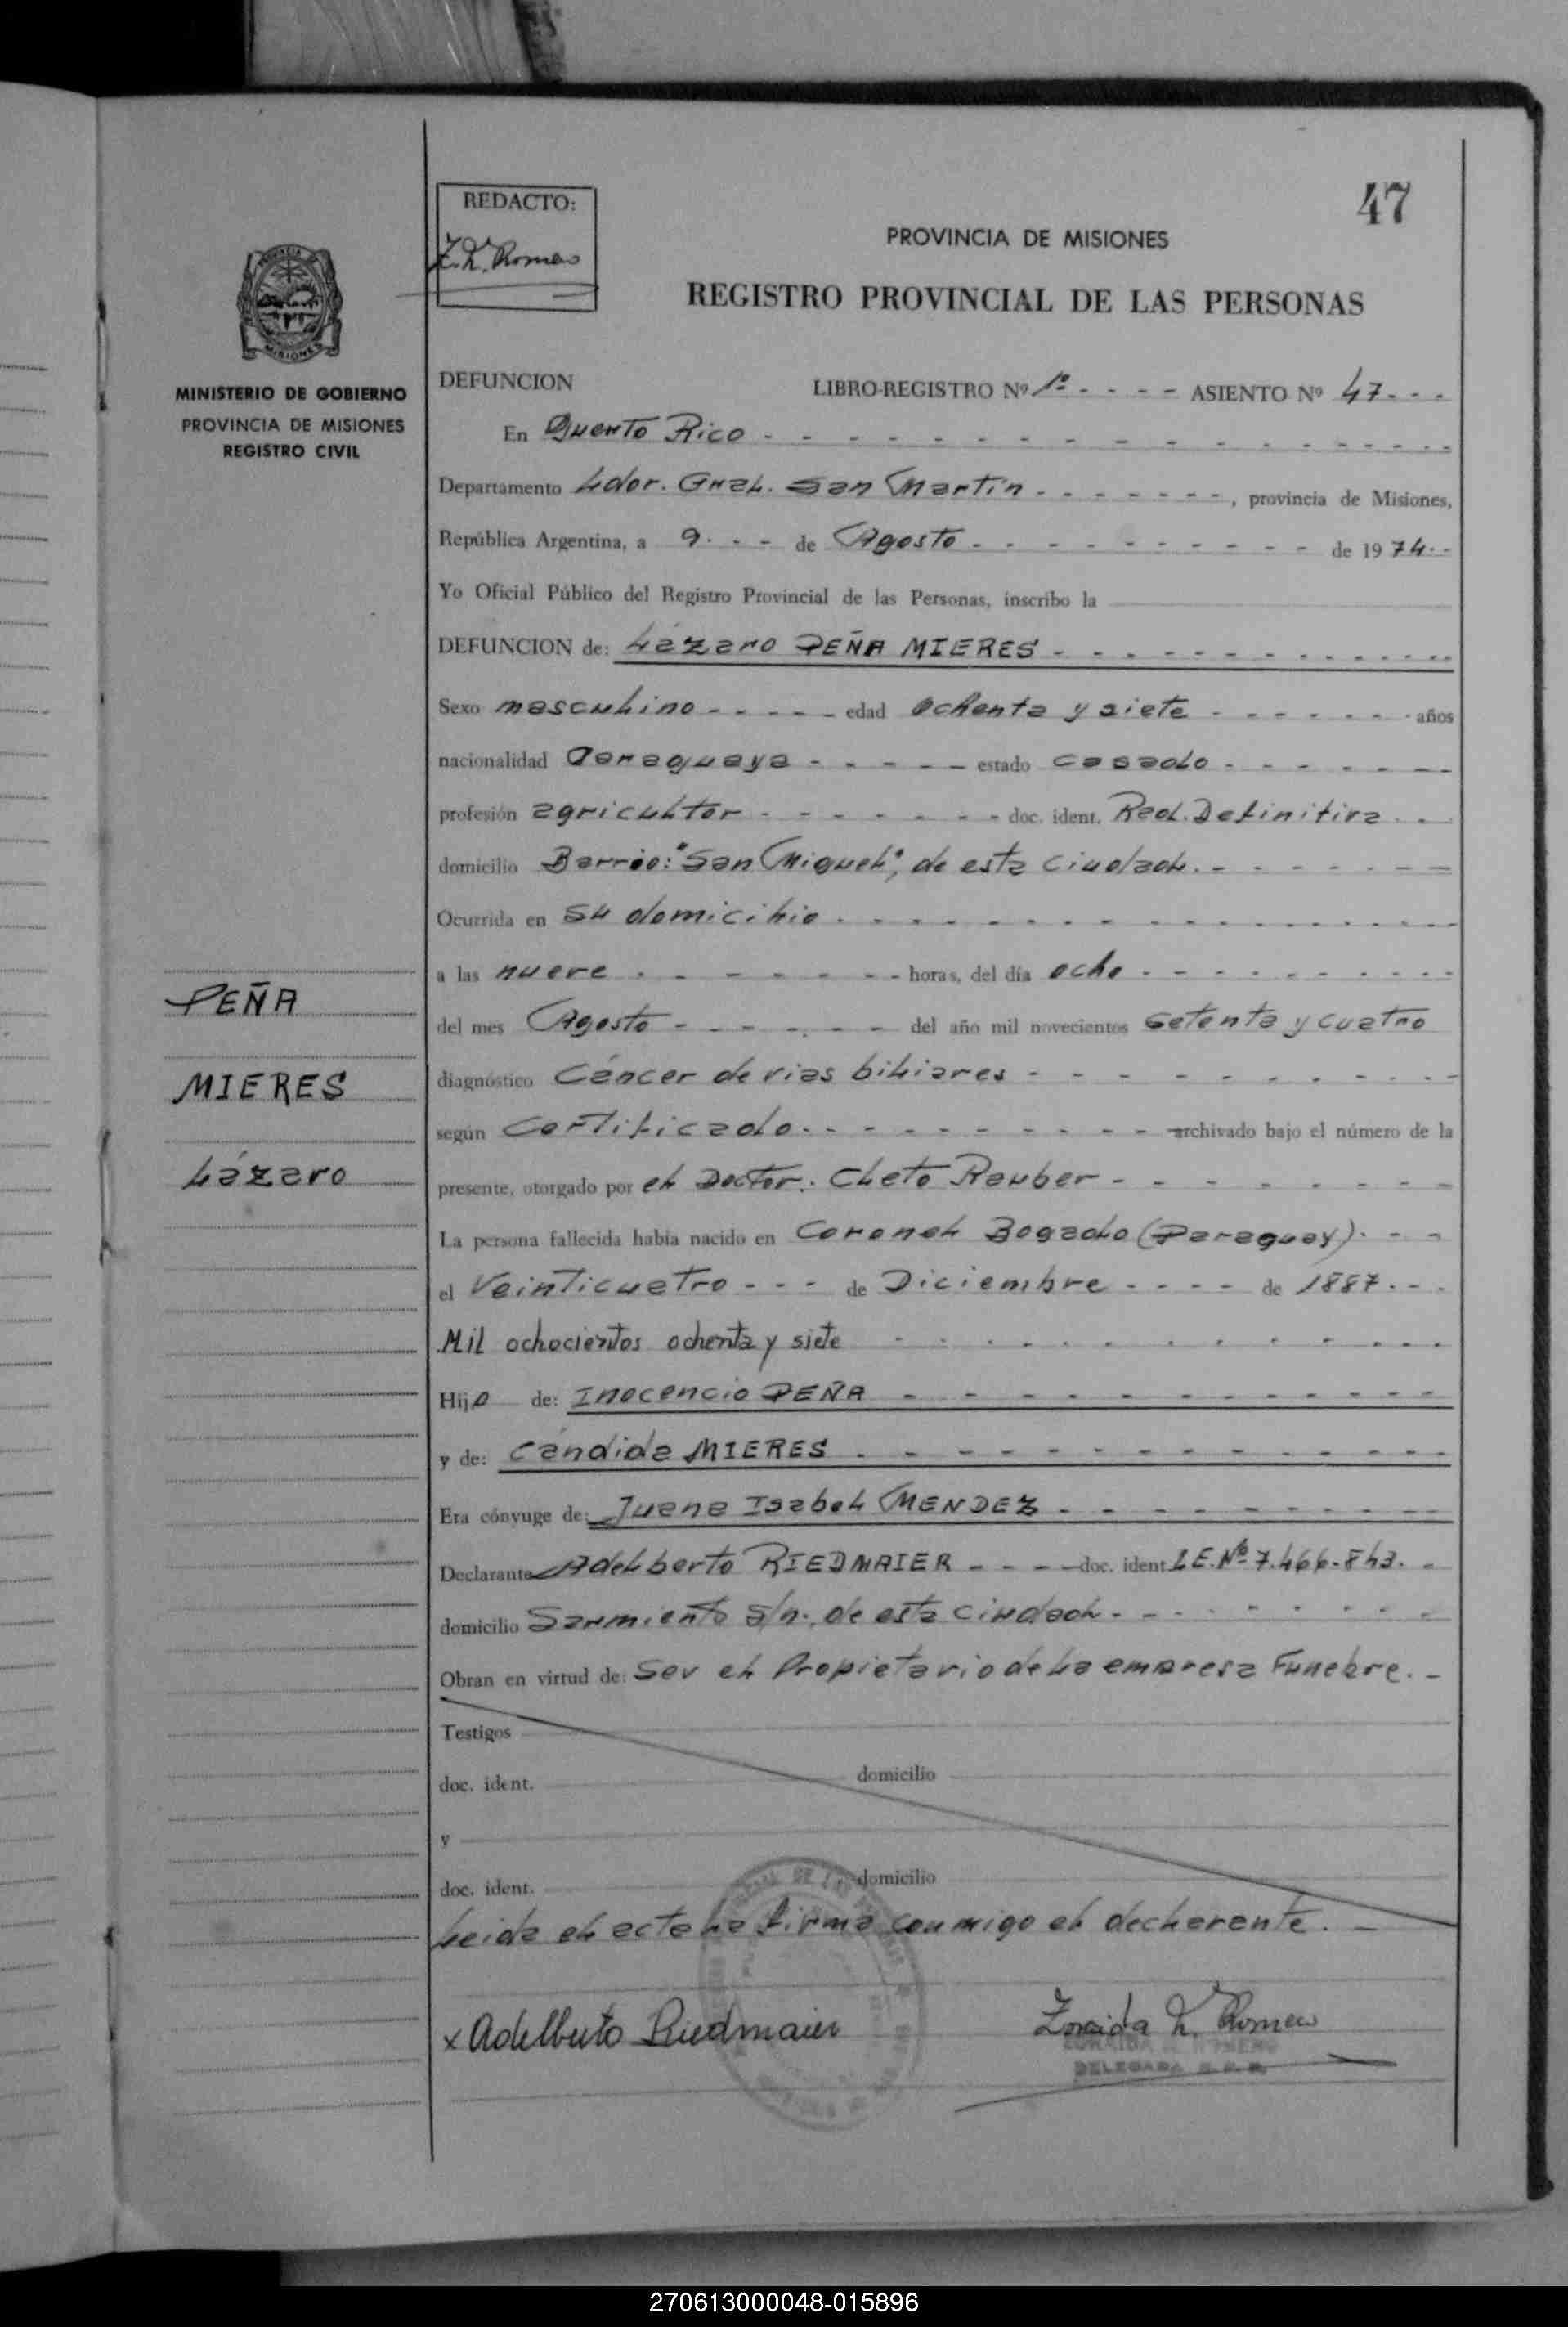 47
REDACTO:
Z. N. Romero
PROVINCIA DE MISIONES
REGISTRO PROVINCIAL DE LAS PERSONAS
MISIONES
MINISTERIO DE GOBIERNO
PROVINCIA DE MISIONES
REGISTRO CIVIL
DEFUNCION LIBRO-REGISTRO Nº 1º - - - - ASIENTO Nº 47 - - -
En Puerto Rico
Departamento Ldor. Gral. San Martín, provincia de Misiones,
República Argentina, a 9 - - - de Agosto de 1974 - -
Yo Oficial Público del Registro Provincial de las Personas, inscribo la
DEFUNCION de: Lázaro PEÑA MIERES
Sexo masculino edad ochenta y siete años
nacionalidad Paraguaya estado casado
profesión agricultor doc. ident. Rad. Definitiva
domicilio Barrio: "San Miguel", de esta ciudad.
Ocurrida en su domicilio
a las nueve horas, del día ocho
del mes Agosto del año mil novecientos setenta y cuatro
diagnóstico Cáncer de vias biliares
según Certificado archivado bajo el número de la
presente, otorgado por el Doctor: Cleto Rauber
La persona fallecida había nacido en Coronel Bogado (Paraguay).
el Veinticuatro - - - de Diciembre - - - - de 1887 - - -
Mil ochocientos ochenta y siete
Hijo de: Inocencio PEÑA
y de: Cándida MIERES
Era cónyuge de: Juana Isabel MENDEZ
Declarante Adelberto RIEDMAIER doc. ident. L.E. Nº 7.466.843.
domicilio Sarmiento s/n. de esta ciudad
Obran en virtud de: Ser el Propietario de la empresa Funebre.
Testigos
doc. ident. domicilio
y
doc. ident. domicilio
Leida el acta la firma conmigo el declarante.
x Adelberto Riedmaier
Zoraida N. Romero
DELEGADA
PEÑA
MIERES
Lázaro
270613000048-015896